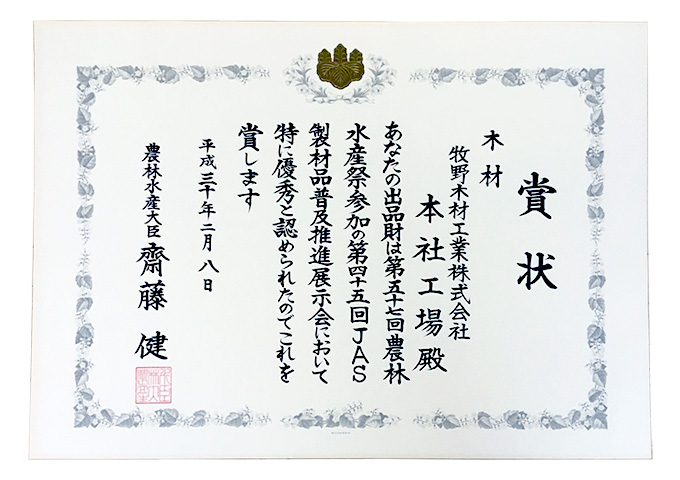 賞状
木材
牧野木材工業株式会社
本社工場殿
あなたの出品財は第五十七回農林
水産祭参加の第四十五回JAS
製材品普及推進展示会において
特に優秀と認められたのでこれを
賞します
平成三十年二月八日
農林水産大臣 齋藤健